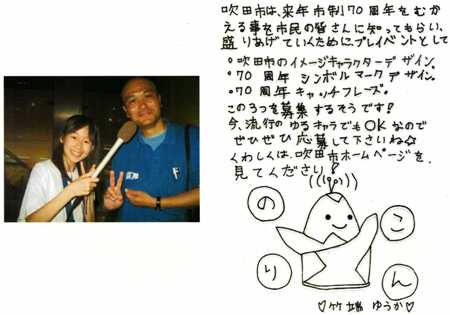 吹田市は、来年市制70周年をむか
える事を市民の皆さんに知ってもらい、
盛りあげていくためにプレイベントとして
○吹田市のイメージキャラクターデザイン。
○70周年シンボルマークデザイン。
○70周年キャッチフレーズ。
この3つを募集するそうです!
今、流行のゆるキャラでもOKなので
ぜひぜひ応募して下さいね☆
くわしくは、吹田市ホームページを、
見てください!
の こ
り ん
♡竹端 ゆうか♡